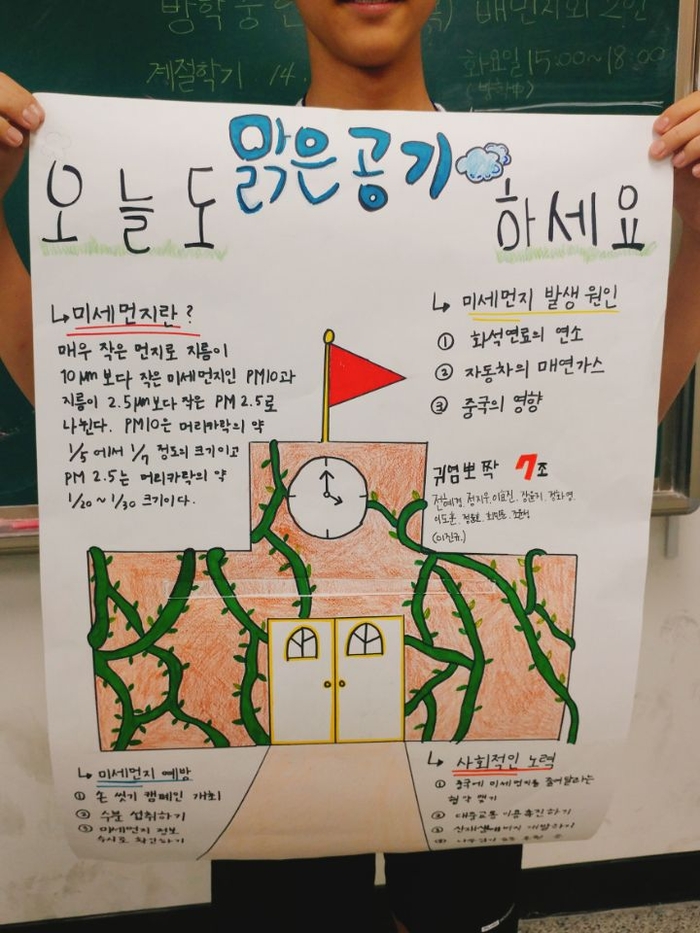 방학중
배먼지외 2인
계절학기 14.
화요일 15:00~18:00
오늘도 맑은공기 하세요
↳미세먼지란?
매우 작은 먼지로 지름이
10㎛보다 작은 미세먼지인 PM10과
지름이 2.5㎛보다 작은 PM 2.5로
나뉜다. PM10은 머리카락의 약
1/5에서 1/7 정도의 크기이고
PM 2.5는 머리카락의 약
1/20 ~ 1/30 크기이다.
↳ 미세먼지 발생 원인
① 화석연료의 연소
② 자동차의 매연가스
③ 중국의 영향
귀염뽀짝 7조
전혜경, 정지우, 이효진,
↳ 미세먼지 예방
① 손 씻기 캠페인 개최
② 수분 섭취하기
③ 미세먼지 정보
수시로 확인하기
↳ 사회적인 노력
① 중국에 미세먼지를 줄여달라는
협약 맺기
② 대중교통 이용 촉진하기
③ 개발하기
④